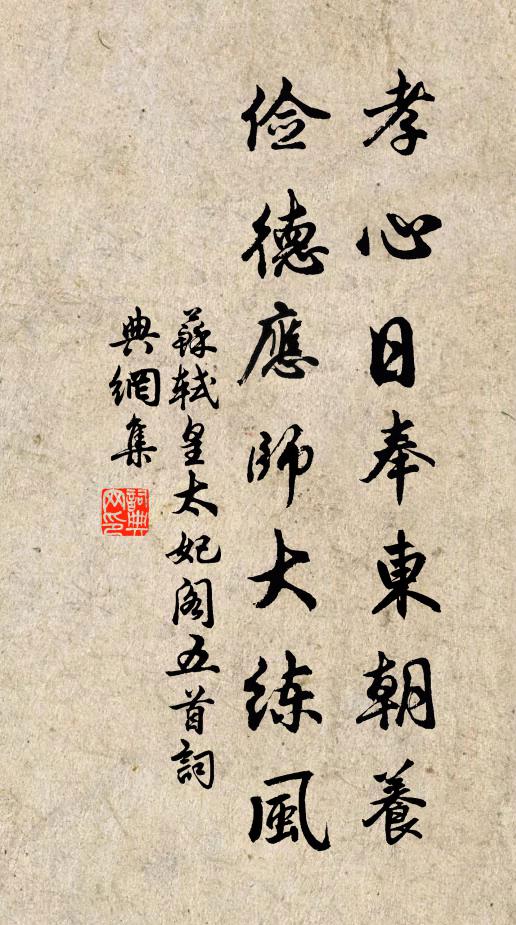 孝心日奉東朝養
儉德應師大練風
蘇軾皇太妃閣五首詞
典網集
詞典網印